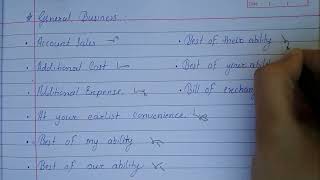 * General Business :
• Account Sales
• Additional Cost
• Additional Expense
• At your earlist convenience
• Best of my ability
• Best of our ability
• Best of their ability
• Best of your ability
• Bill of exchange